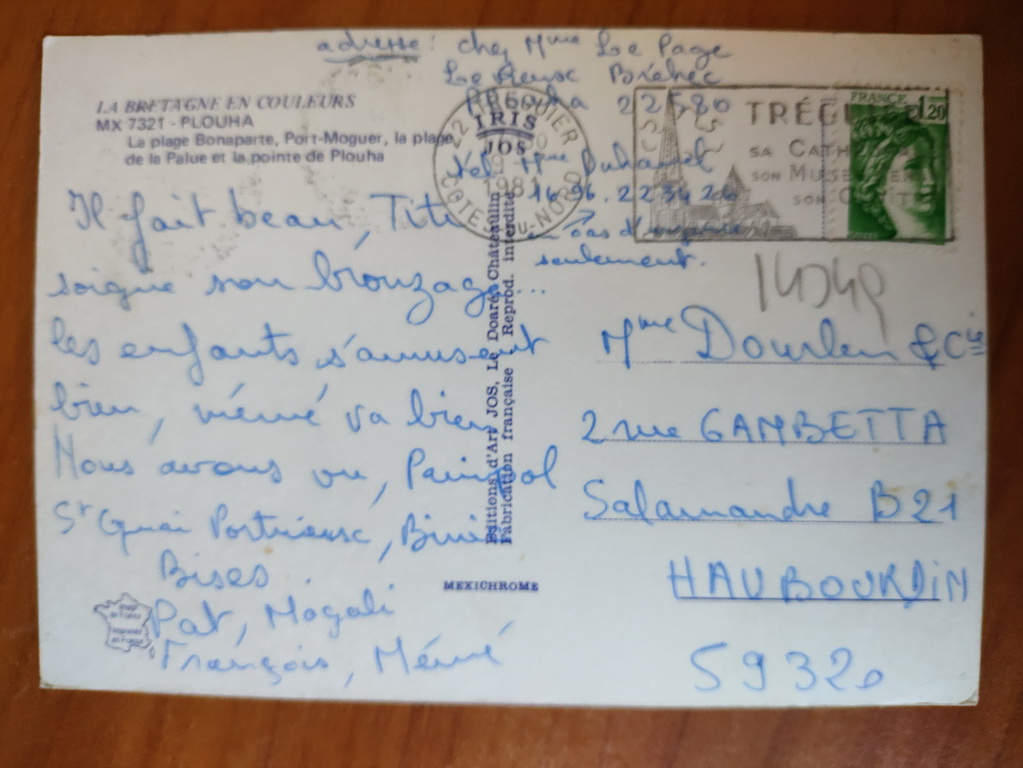 adresse : chez Mme Le Page
Bréhec
22580
Tel Mme Duhamel
16.96.22
en cas d'urgence
seulement.
LA BRETAGNE EN COULEURS
MX 7321 - PLOUHA
La plage Bonaparte, Port-Moguer, la plage
de la Palue et la pointe de Plouha
IRIS
JOS
22
CÔTES-DU-NORD
TRÉG
SA CATH
SON MUSÉE
SON
FRANCE 1,20
Il fait beau, Titi
soigne son bronzage...
les enfants s'amusent
bien, mémé va bien
Nous avons vu, Paimpol
St Quai Portrieux, Binic
Bises.
Pat, Magali
François, Mémé
Editions d'Art JOS, Le Doaré, Châteaulin
Fabrication française - Reprod. interdite
MEXICHROME
Mme Dourlen & Cie
2 rue GAMBETTA
Salamandre B21
HAUBOURDIN
59320